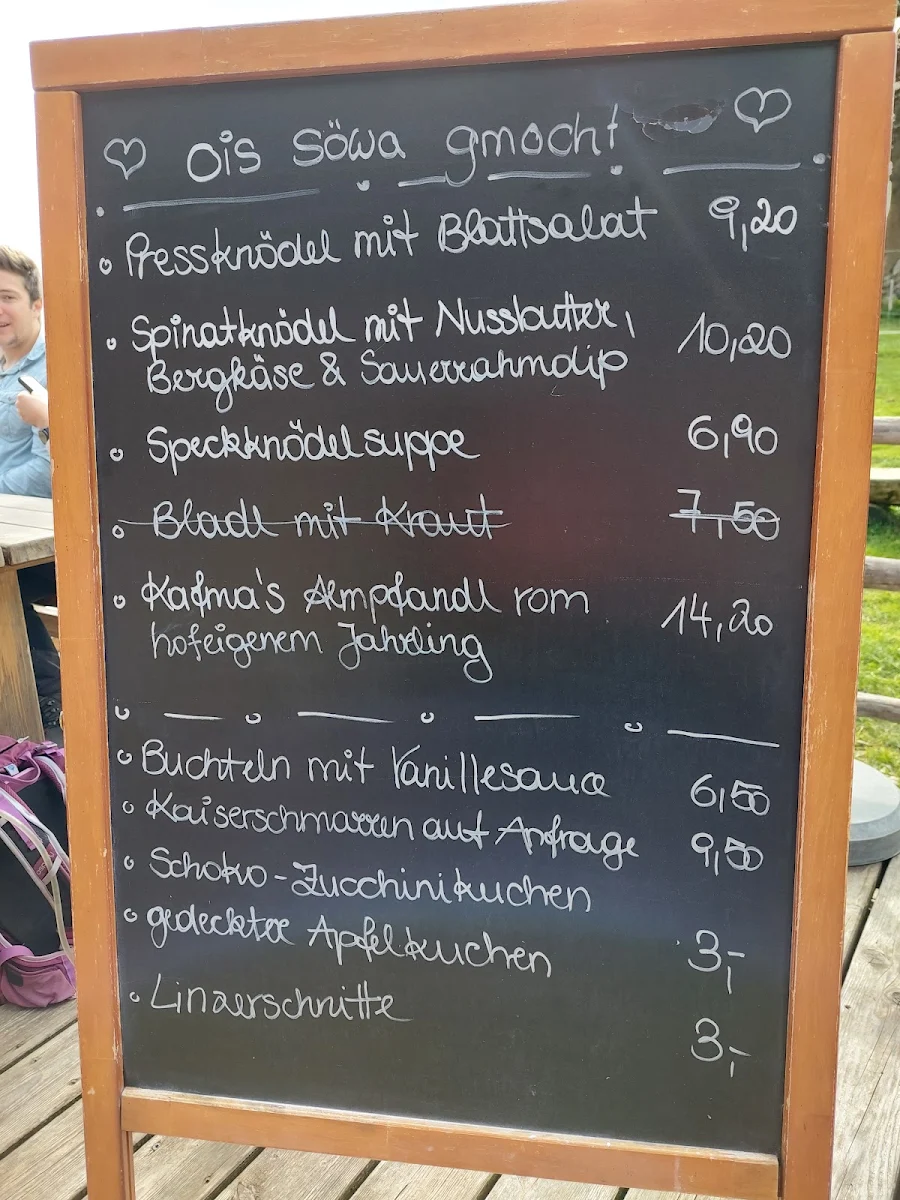 ♡ Ois söwa gmocht ♡
Pressknödel mit Blattsalat 9,20
Spinatknödel mit Nussbutter, 10,20
Bergkäse & Sauerrahmdip
Speckknödelsuppe 6,90
Bladl mit Kraut 7,50
Kafma's Almpfandl vom 14,20
hofeigenem Jahrling
Buchteln mit Vanillesauce 6,50
Kaiserschmarren auf Anfrage 9,50
Schoko-Zucchinikuchen
gedeckter Apfelkuchen 3,-
Linzerschnitte
3,-